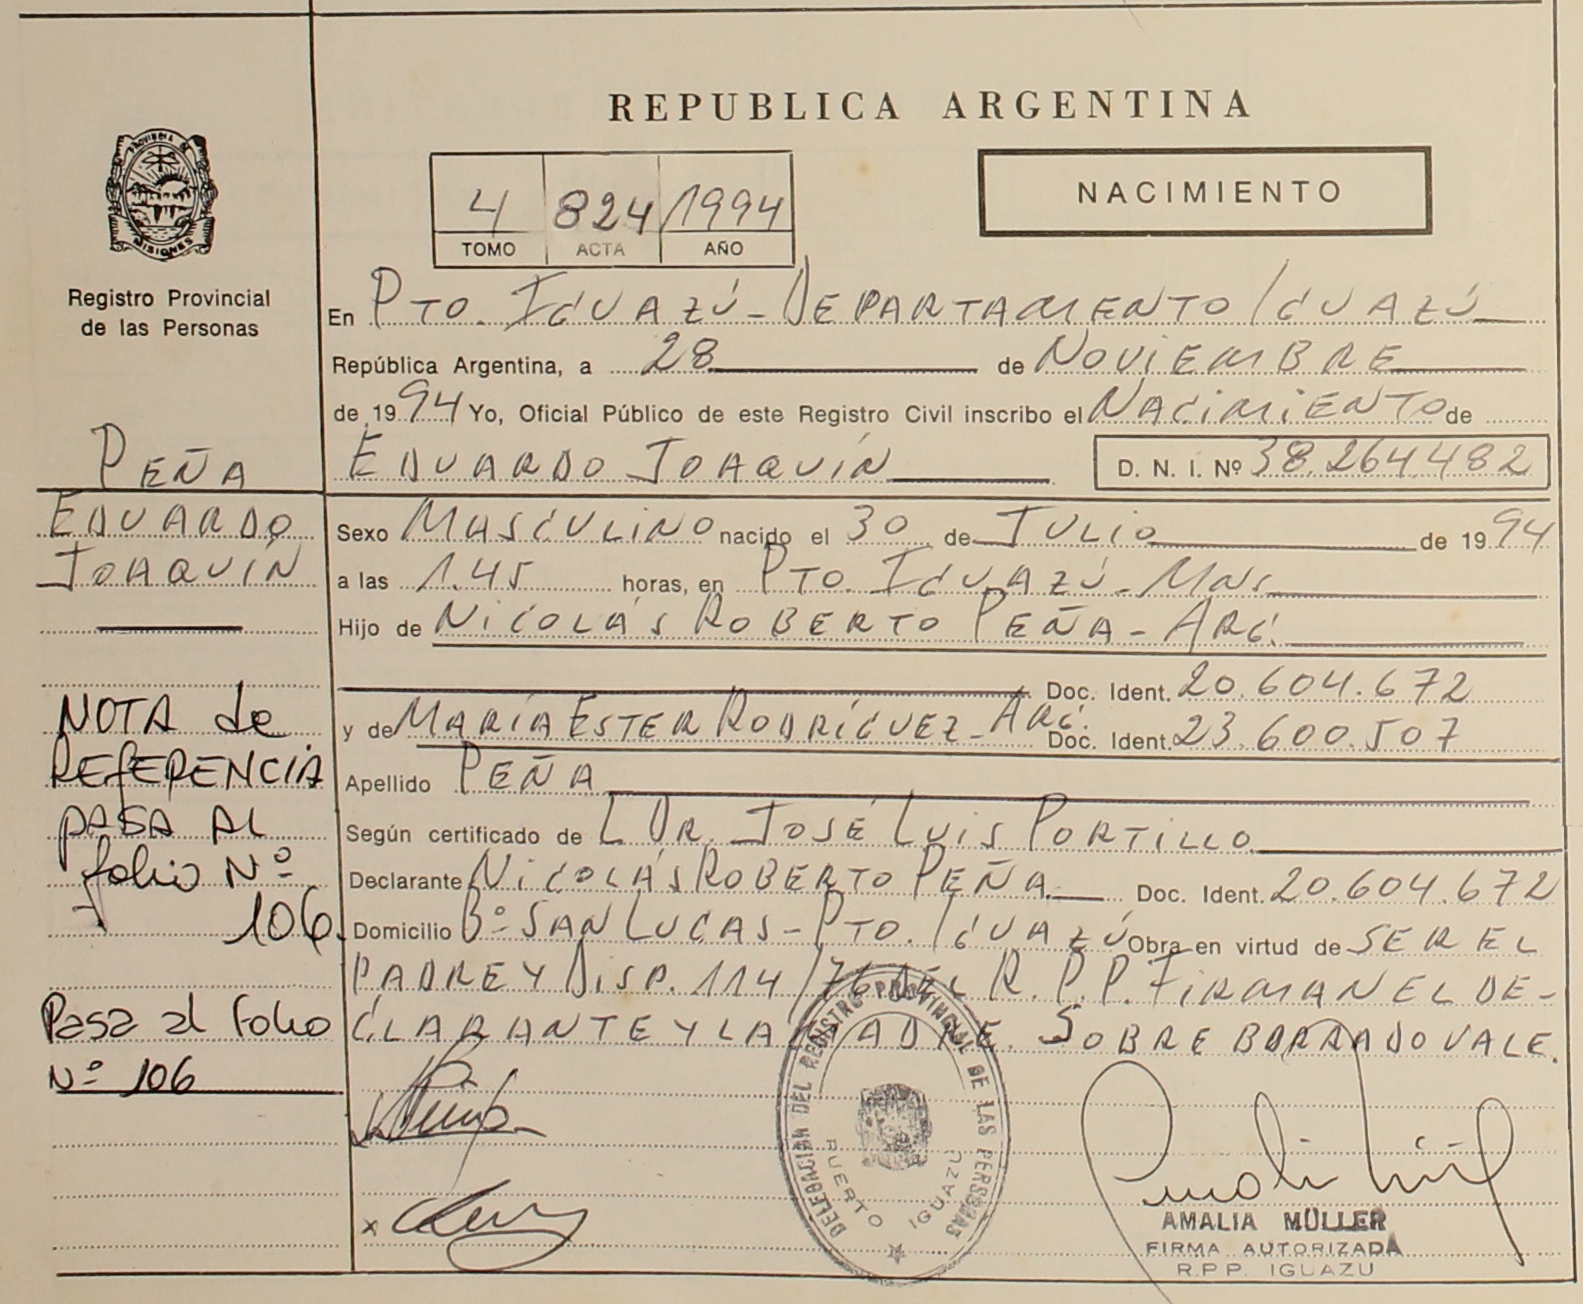 REPUBLICA ARGENTINA
PROVINCIA DE
MISIONES
Registro Provincial
de las Personas
4 824 1994
TOMO ACTA AÑO
NACIMIENTO
En PTO. IGUAZÚ - DEPARTAMENTO IGUAZÚ
República Argentina, a 28 de NOVIEMBRE
de 1994 Yo, Oficial Público de este Registro Civil inscribo el NACIMIENTO de
EDUARDO JOAQUÍN D. N. I. Nº 38.264.482
Sexo MASCULINO nacido el 30 de JULIO de 1994
a las 1.45 horas, en PTO. IGUAZÚ - MNS
Hijo de NICOLÁS ROBERTO PEÑA - ARG.
Doc. Ident. 20.604.672
y de MARÍA ESTER RODRÍGUEZ - ARG. Doc. Ident. 23.600.507
Apellido PEÑA
Según certificado de L DR. JOSÉ LUIS PORTILLO
Declarante NICOLÁS ROBERTO PEÑA Doc. Ident. 20.604.672
Domicilio Bº SAN LUCAS - PTO. IGUAZÚ Obra en virtud de SER EL
PADRE Y DISP. 114/76 DEL R. P. P. FIRMAN EL DE-
CLARANTE Y LA MADRE. SOBRE BORRADO VALE.
PEÑA
EDUARDO
JOAQUÍN
NOTA de
REFERENCIA
PASA AL
folio Nº
106
Pasa al folio
Nº 106
DELEGACION DEL REGISTRO PROVINCIAL DE LAS PERSONAS
PUERTO IGUAZU
AMALIA MÜLLER
FIRMA AUTORIZADA
R.P.P. IGUAZU